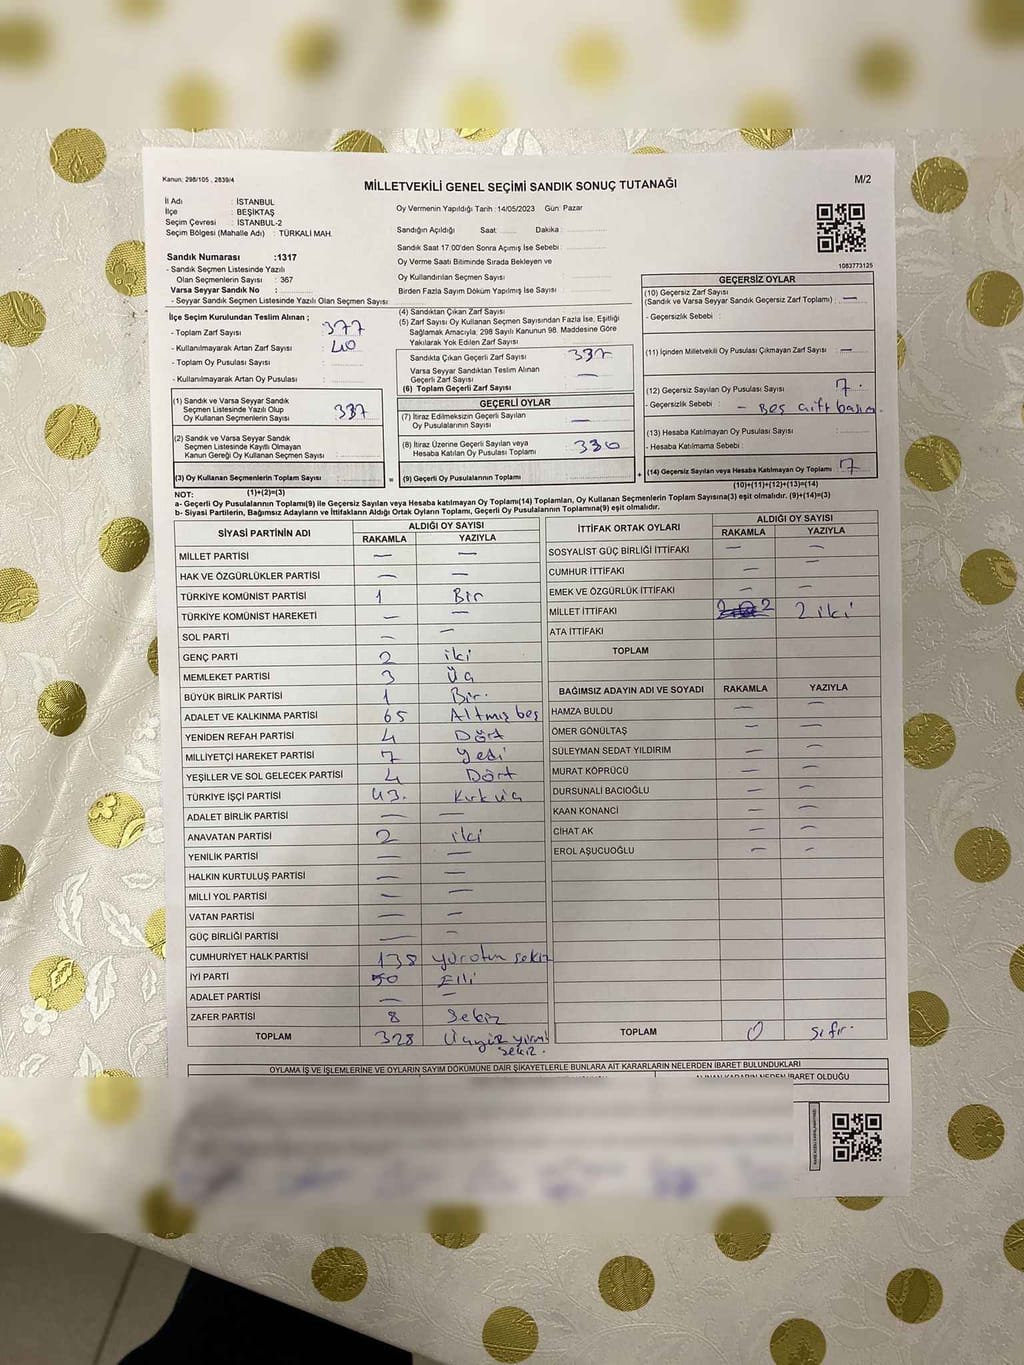 Kanun: 298/105 , 2839/4
MİLLETVEKİLİ GENEL SEÇİMİ SANDIK SONUÇ TUTANAĞI
M/2
İl Adı : İSTANBUL
İlçe : BEŞİKTAŞ
Seçim Çevresi : İSTANBUL-2
Seçim Bölgesi (Mahalle Adı) : TÜRKALİ MAH.
Oy Vermenin Yapıldığı Tarih : 14/05/2023 Gün: Pazar
Sandığın Açıldığı Saat Dakika :
Sandık Saat 17.00'den Sonra Açımış İse Sebebi :
Oy Verme Saati Bitiminde Sırada Bekleyen ve
Oy Kullandırılan Seçmen Sayısı :
Birden Fazla Sayım Döküm Yapılmış İse Sayısı :
1083773125
Sandık Numarası :1317
- Sandık Seçmen Listesinde Yazılı
Olan Seçmenlerin Sayısı : 367
Varsa Seyyar Sandık No :
- Seyyar Sandık Seçmen Listesinde Yazılı Olan Seçmen Sayısı:
İlçe Seçim Kurulundan Teslim Alınan ;
- Toplam Zarf Sayısı : 377
- Kullanılmayarak Artan Zarf Sayısı : 40
- Toplam Oy Pusulası Sayısı :
- Kullanılmayarak Artan Oy Pusulası :
(1) Sandık ve Varsa Seyyar Sandık
Seçmen Listesinde Yazılı Olup
Oy Kullanan Seçmenlerin Sayısı : 337
(2) Sandık ve Varsa Seyyar Sandık
Seçmen Listesinde Kayıtlı Olmayan
Kanun Gereği Oy Kullanan Seçmen Sayısı :
(3) Oy Kullanan Seçmenlerin Toplam Sayısı
(1)+(2)=(3)
(4) Sandıktan Çıkan Zarf Sayısı
(5) Zarf Sayısı Oy Kullanan Seçmen Sayısından Fazla İse, Eşitliği
Sağlamak Amacıyla, 298 Sayılı Kanunun 98. Maddesine Göre
Yakılarak Yok Edilen Zarf Sayısı :
Sandıkta Çıkan Geçerli Zarf Sayısı : 337
Varsa Seyyar Sandıktan Teslim Alınan
Geçerli Zarf Sayısı : —
(6) Toplam Geçerli Zarf Sayısı
GEÇERLİ OYLAR
(7) İtiraz Edilmeksizin Geçerli Sayılan
Oy Pusulalarının Sayısı : —
(8) İtiraz Üzerine Geçerli Sayılan veya
Hesaba Katılan Oy Pusulası Toplamı : 330
(9) Geçerli Oy Pusulalarının Toplamı
GEÇERSİZ OYLAR
(10) Geçersiz Zarf Sayısı
(Sandık ve Varsa Seyyar Sandık Geçersiz Zarf Toplamı) : —
- Geçersizlik Sebebi :
(11) İçinden Milletvekili Oy Pusulası Çıkmayan Zarf Sayısı : —
(12) Geçersiz Sayılan Oy Pusulası Sayısı : 7.
- Geçersizlik Sebebi : - Boş çift basım.
(13) Hesaba Katılmayan Oy Pusulası Sayısı :
- Hesaba Katılmama Sebebi :
(14) Geçersiz Sayılan veya Hesaba Katılmayan Oy Toplamı : 7
(10)+(11)+(12)+(13)=(14)
NOT:
a- Geçerli Oy Pusulalarının Toplamı(9) ile Geçersiz Sayılan veya Hesaba katılmayan Oy Toplamı(14) Toplamları, Oy Kullanan Seçmenlerin Toplam Sayısına(3) eşit olmalıdır. (9)+(14)=(3)
b- Siyasi Partilerin, Bağımsız Adayların ve İttifakların Aldığı Ortak Oyların Toplamı, Geçerli Oy Pusulalarının Toplamına(9) eşit olmalıdır.
SİYASİ PARTİNİN ADI ALDIĞI OY SAYISI
RAKAMLA YAZIYLA
MİLLET PARTİSİ — —
HAK VE ÖZGÜRLÜKLER PARTİSİ — —
TÜRKİYE KOMÜNİST PARTİSİ 1 Bir
TÜRKİYE KOMÜNİST HAREKETİ — —
SOL PARTİ — —
GENÇ PARTİ 2 iki
MEMLEKET PARTİSİ 3 Üç
BÜYÜK BİRLİK PARTİSİ 1 Bir.
ADALET VE KALKINMA PARTİSİ 65 Altmış beş
YENİDEN REFAH PARTİSİ 4 Dört
MİLLİYETÇİ HAREKET PARTİSİ 7 Yedi
YEŞİLLER VE SOL GELECEK PARTİSİ 4 Dört
TÜRKİYE İŞÇİ PARTİSİ 43. Kırk üç
ADALET BİRLİK PARTİSİ — —
ANAVATAN PARTİSİ 2 iki
YENİLİK PARTİSİ — —
HALKIN KURTULUŞ PARTİSİ — —
MİLLİ YOL PARTİSİ — —
VATAN PARTİSİ — —
GÜÇ BİRLİĞİ PARTİSİ — —
CUMHURİYET HALK PARTİSİ 138 sekiz
İYİ PARTİ 50 Elli
ADALET PARTİSİ — —
ZAFER PARTİSİ 8 Sekiz
TOPLAM 328 Üçyüz yirmi
sekiz.
İTTİFAK ORTAK OYLARI ALDIĞI OY SAYISI
RAKAMLA YAZIYLA
SOSYALİST GÜÇ BİRLİĞİ İTTİFAKI — —
CUMHUR İTTİFAKI — —
EMEK VE ÖZGÜRLÜK İTTİFAKI — —
MİLLET İTTİFAKI 2 2 iki
ATA İTTİFAKI
TOPLAM
BAĞIMSIZ ADAYIN ADI VE SOYADI RAKAMLA YAZIYLA
HAMZA BULDU — —
ÖMER GÖNÜLTAŞ — —
SÜLEYMAN SEDAT YILDIRIM — —
MURAT KÖPRÜCÜ — —
DURSUNALİ BACIOĞLU — —
KAAN KONANCİ — —
CİHAT AK — —
EROL AŞUCUOĞLU — —
TOPLAM 0 Sıfır.
OYLAMA İŞ VE İŞLEMLERİNE VE OYLARIN SAYIM DÖKÜMÜNE DAİR ŞİKAYETLERLE BUNLARA AİT KARARLARIN NELERDEN İBARET BULUNDUKLARI
ALINAN KARARIN NEDEN İBARET OLDUĞU